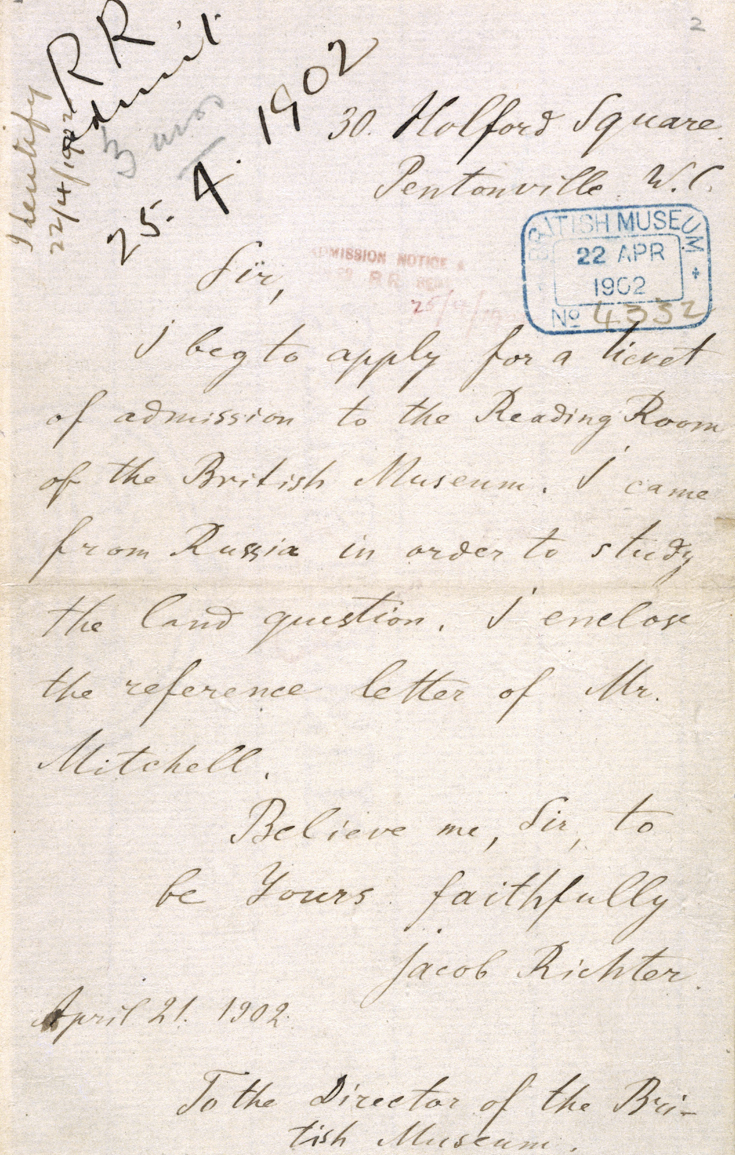 2
RR
admit
3 mos
25.4.1902
Identify
22/4/1902
30. Holford Square.
Pentonville. W.C.
BRITISH MUSEUM
22 APR
1902
No 4332
ADMISSION NOTICE
RR
Sir,
I beg to apply for a ticket
of admission to the Reading Room
of the British Museum. I came
from Russia in order to study
the land question. I enclose
the reference letter of Mr.
Mitchell.
Believe me, Sir, to
be Yours faithfully
Jacob Richter.
April 21. 1902.
To the Director of the Bri-
tish Museum.